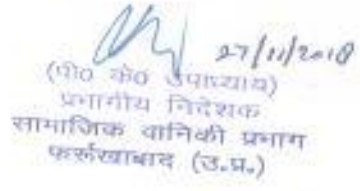 27/11/2018
(पी० के० उपाध्याय)
प्रभागीय निदेशक
सामाजिक वानिकी प्रभाग
फर्रूखाबाद (उ.प्र.)